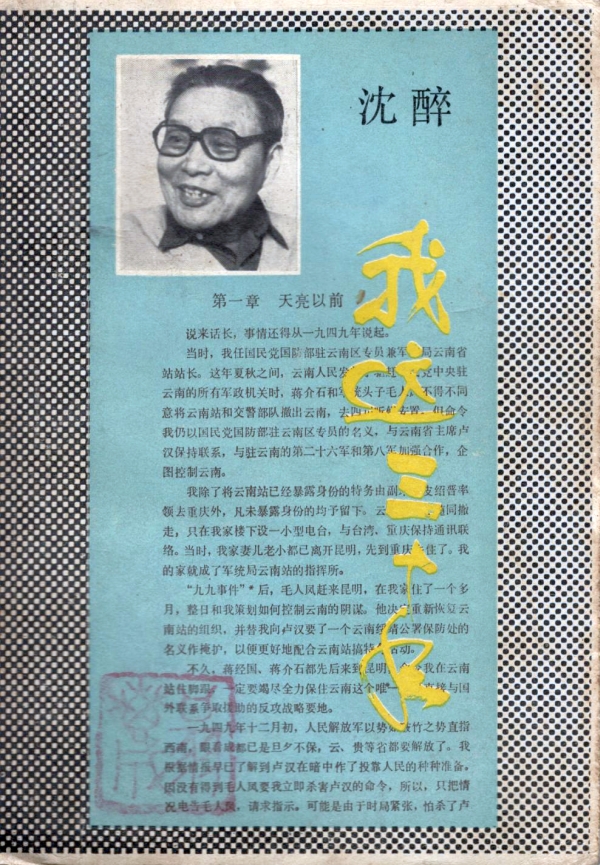 沈醉
我这三十年
第一章 天亮以前
说来话长，事情还得从一九四九年说起。
当时，我任国民党国防部驻云南区专员兼军 局云南省
站站长。这年夏秋之间，云南人民发 党中央驻
云南的所有军政机关时，蒋介石和 统头子毛人 不得不同
意将云南站和交警部队撤出云南，去四 但命令
我仍以国民党国防部驻云南区专员的名义，与云南省主席卢
汉保持联系，与驻云南的第二十六军和第八军加强合作，企
图控制云南。
我除了将云南站已经暴露身份的特务由副 皮绍晋率
领去重庆外，凡未暴露身份的均予留下。云 随同撤
走，只在我家楼下设一小型电台，与台湾、重庆保持通讯联
络。当时，我家妻儿老小都已离开昆明，先到重庆 住了。我
的家就成了军统局云南站的指挥所。
“九九事件”*后，毛人凤赶来昆明，在我家住了一个多
月，整日和我策划如何控制云南的阴谋。他决定重新恢复云
南站的组织，并替我向卢汉要了一个云南绥靖公署保防处的
名义作掩护，以便更好地配合云南站搞特 活动。
不久，蒋经国、蒋介石都先后来到昆明， 我在云南
站住脚跟，一定要竭尽全力保住云南这个唯一 直接与国
外联系争取援助的反攻战略要地。
一九四九年十二月初，人民解放军以势如破竹之势直指
西南，眼看成都已是旦夕不保，云、贵等省都要解放了。我
根据情报早已了解到卢汉在暗中作了投靠人民的种种准备。
因没有得到毛人凤要我立即杀害卢汉的命令，所以，只把情
况电告毛人凤，请求指示。可能是由于时局紧张，怕杀了卢